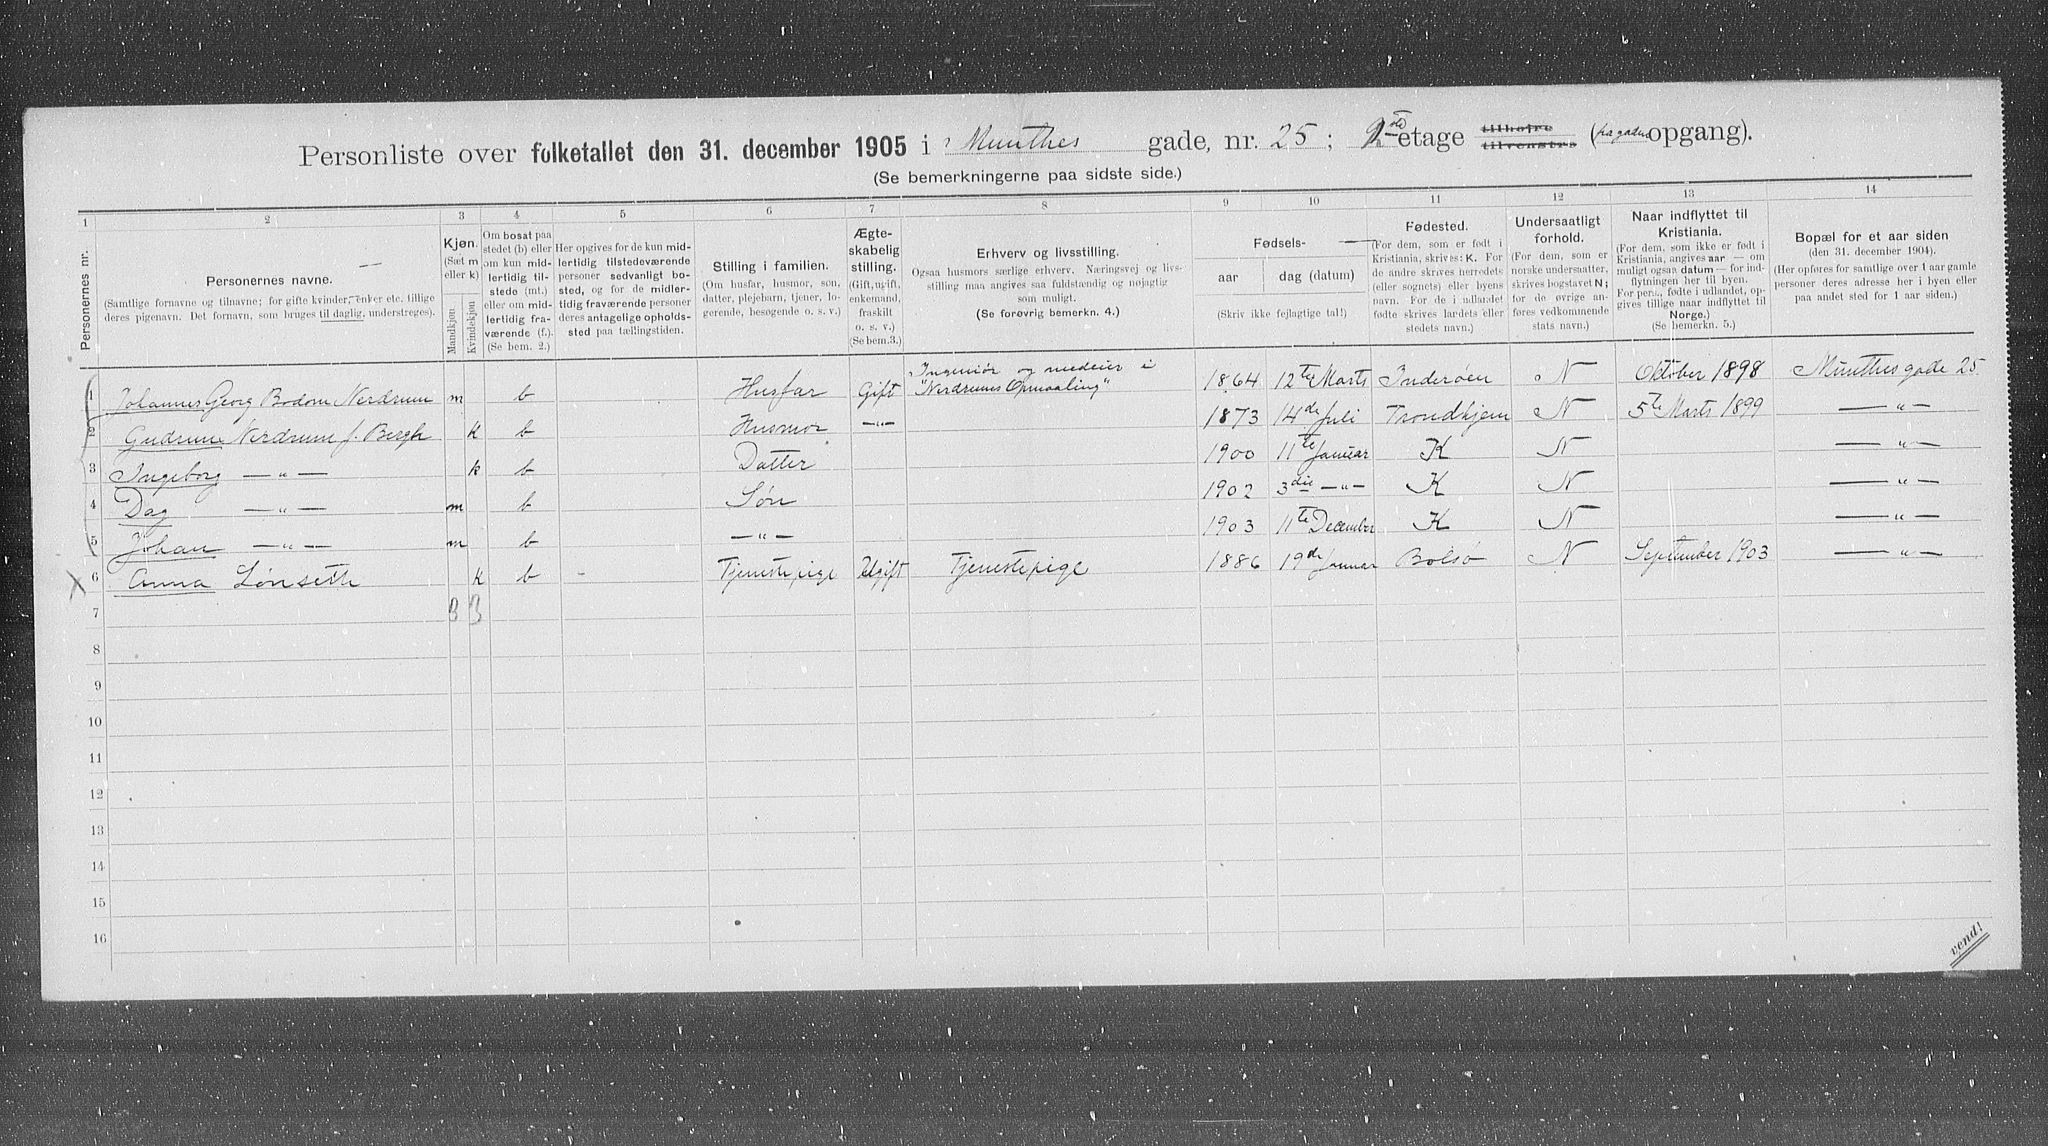 Personliste over folketallet den 31. december 1905 i Munthes gade, nr. 25; etage tilhøire tilvenstre (fra gaden opgang).
(Se bemerkningerne paa sidste side.)
1 2 3 4 5 6 7 8 9 10 11 12 13 14
Personernes nr.
Personernes navne.
(Samtlige fornavne og tilnavne; for gifte kvinder, enker etc. tillige
deres pigenavn. Det fornavn, som bruges til daglig, understreges).
Kjøn.
(Sæt m
eller k)
Mandkjøn
Kvindekjøn
Om bosat paa
stedet (b) eller
om kun mid-
lertidig til-
stede (mt.)
eller om mid-
lertidig fra-
værende (f.).
(Se bem. 2.)
Her opgives for de kun mid-
lertidig tilstedeværende
personer sedvanlig bo-
sted, og for de midler-
tidig fraværende personer
deres antagelige opholds-
sted paa tællingstiden.
Stilling i familien.
(Om husfar, husmor, søn,
datter, plejebarn, tjener, lo-
gerende, besøgende o. s. v.)
Ægte-
skabelig
stilling.
(Gift, ugift,
enkemand,
fraskilt
o. s. v.)
(Se bem.3.)
Erhverv og livsstilling.
Ogsaa husmors særlige erhverv. Næringsvej og livs-
stilling maa angives saa fuldstændig og nøjagtig
som muligt.
(Se forøvrig bemerkn. 4.)
Fødsels-
aar
dag (datum)
(Skriv ikke fejlagtige tal!)
Fødested.
(For dem, som er født i
Kristiania, skrives: K. For
de andre skrives herredets
(eller sognets) eller byens
navn. For de i udlandet
fødte skrives landets eller
stedets navn.)
Undersaatligt
forhold.
(For dem, som er
norske undersaatter,
skrives bogstavet N;
for de øvrige an-
føres vedkommende
stats navn.)
Naar indflyttet til
Kristiania.
(For dem, som ikke er født i
Kristiania, angives aar — om
muligt ogsaa datum — for ind-
flytningen her til byen.
For pers., fødte i udlandet, op-
gives tillige naar indflyttet til
Norge.)
(Se bemerkn. 5.)
Bopæl for et aar siden
(den 31. december 1904).
(Her opføres for samtlige over 1 aar gamle
personer deres adresse her i byen eller
paa andet sted for 1 aar siden.)
1 Johannes Georg Bodom Nerdrum m b Husfar Gift Ingeniør og medeier i "Nerdrums Opmaaling" 1864 12te Marts Inderøen N Oktober 1898 Munthesgade 25
2 Gudrun Nerdrum f. Bergh k b Husmor —"— 1873 14de Juli Trondhjem N 5te Marts 1899 —"—
3 Ingeborg —"— k b Datter 1900 11te Januar K N —"—
4 Dag —"— m b Søn 1902 3die —"— K N —"—
5 Johan —"— m b —"— 1903 11te December K N —"—
X 6 Anna Lønseth k b - Tjenestepige Ugift Tjenestepige 1886 19de Januar Bolsø N September 1903 —"—
7 3 3
8
9
10
11
12
13
14
15
16
vend!